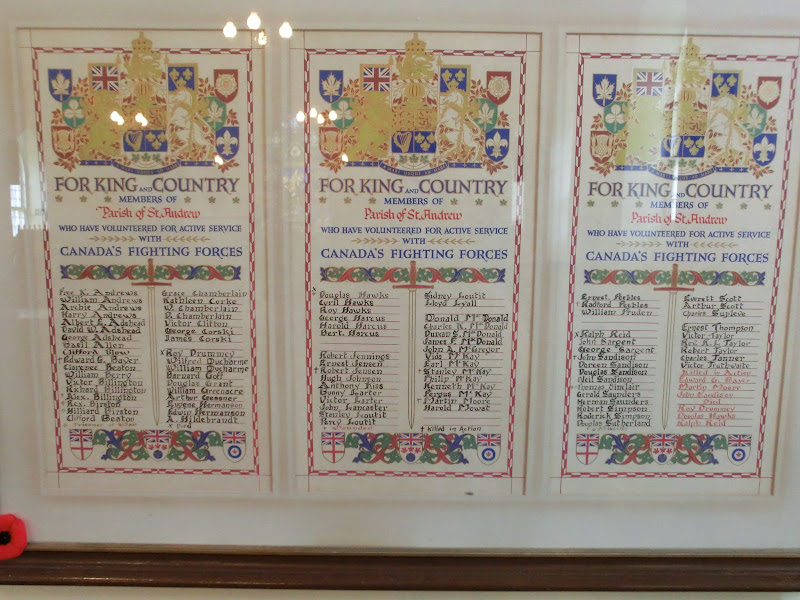 FOR KING AND COUNTRY
MEMBERS OF
Parish of St. Andrew
WHO HAVE VOLUNTEERED FOR ACTIVE SERVICE
WITH
CANADA'S FIGHTING FORCES
Andrews
William Andrews
Archie Andrews
Harry Andrews
Albert E. Adshead
David W. Adshead
George Adshead
Basil Allen
Clifford Blow
Edward G.
Clarence Beaton
William Berry
Victor Billington
Richard Billington
Alex. Billington
Hilliard Birston
Clifford Beaton
Grace Chamberlain
Kathleen Corke
W. Chamberlain
Chamberlain
Victor Clifton
George Corski
James Corski
x Roy Drumney
Wilfred Ducharme
William Ducharme
Barnard Goff
Douglas Grant
William Greenacre
Arthur Goessner
Eugene Hermanson
Edwin Hermanson
A. Hildebrandt
x Died
FOR KING AND COUNTRY
MEMBERS OF
Parish of St. Andrew
WHO HAVE VOLUNTEERED FOR ACTIVE SERVICE
WITH
CANADA'S FIGHTING FORCES
x Douglas Hawks
Cyril Hawks
Roy Hawks
George Harcus
Harold Harcus
Bert. Harcus
Robert Jennings
Ernest Jensen
Robert Jensen
Hugh Johnson
Anthony Pius
Victor Karter
John Lancaster
Stanley Loutit
Percy Loutit
Wounded
Sidney Loutit
Lloyd Lyall
Donald McDonald
Charles R. McDonald
Duncan S. McDonald
James F. McDonald
John A. McGregor
Vid. McKay
Earl McKay
Stanley McKay
Philip McKay
Kenneth McKay
Fergus McKay
† Martin Moore
Harold Mowat
† Killed in Action
FOR KING AND COUNTRY
MEMBERS OF
Parish of St. Andrew
WHO HAVE VOLUNTEERED FOR ACTIVE SERVICE
WITH
CANADA'S FIGHTING FORCES
Ernest Peebles
Radford Peebles
William Pruden
x Ralph Reid
John Sargent
George Sargent
John Sandison
Doreen Sandison
Douglas Sandison
Neil Sandison
Thomas Sinclair
Gerald Saunders
Herman Saunders
Robert Simpson
Roderick Simpson
Douglas Sutherland
Everett Scott
Arthur Scott
Charles
Ernest Thompson
Victor Taylor
Rev. R. L. Taylor
Robert Taylor
Charles Tanner
Victor
Killed in Action
Edward G.
Martin Moore
John Sandison
Died
Roy Drumney
Douglas Hawks
Ralph Reid